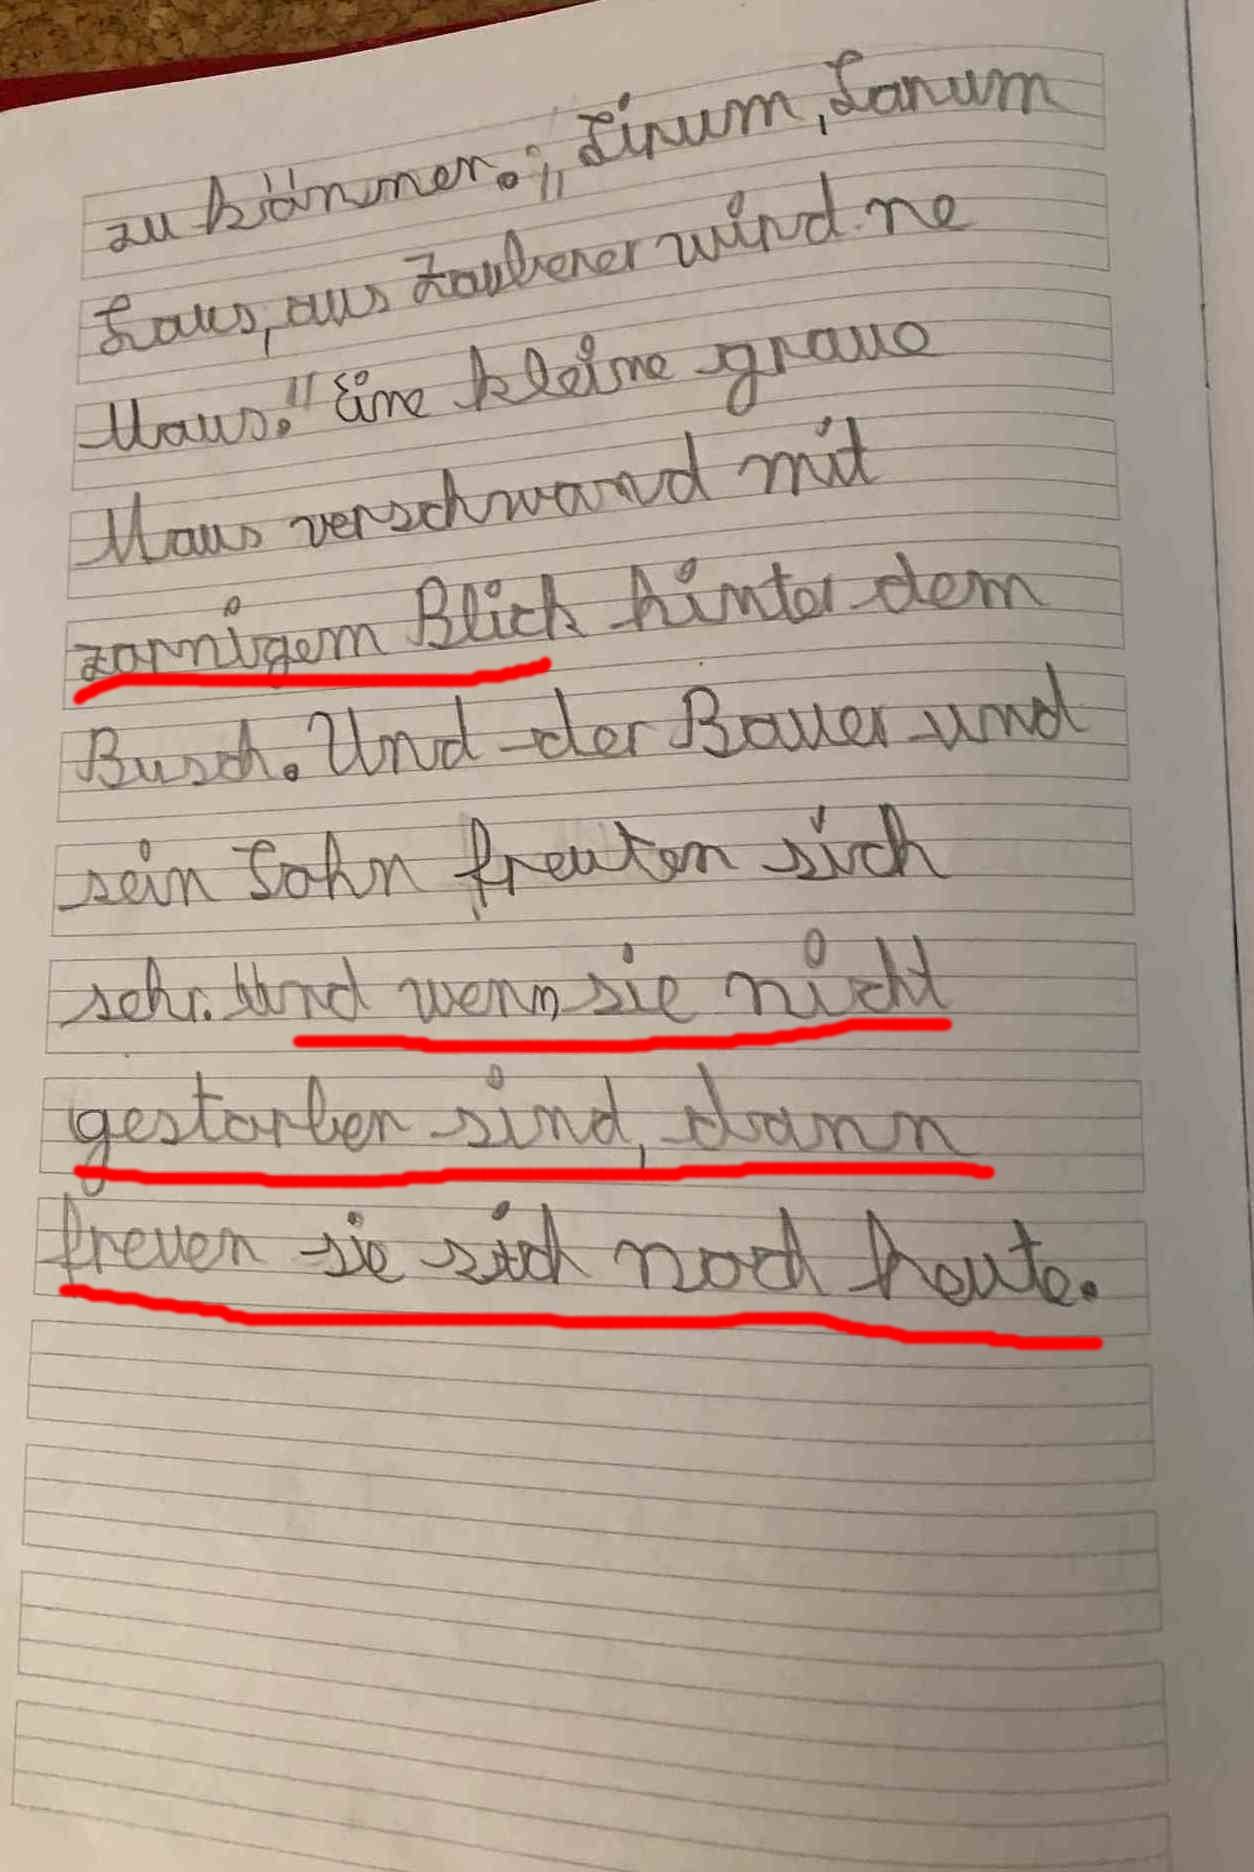 zu kämmen. „Linum, Lanum
Laus, aus Zauberer wird ne
Maus." Eine kleine graue
Maus verschwand mit
zornigem Blick hinter dem
Busch. Und der Bauer und
sein Sohn freuten sich
sehr. Und wenn sie nicht
gestorben sind, dann
freuen sie sich noch heute.